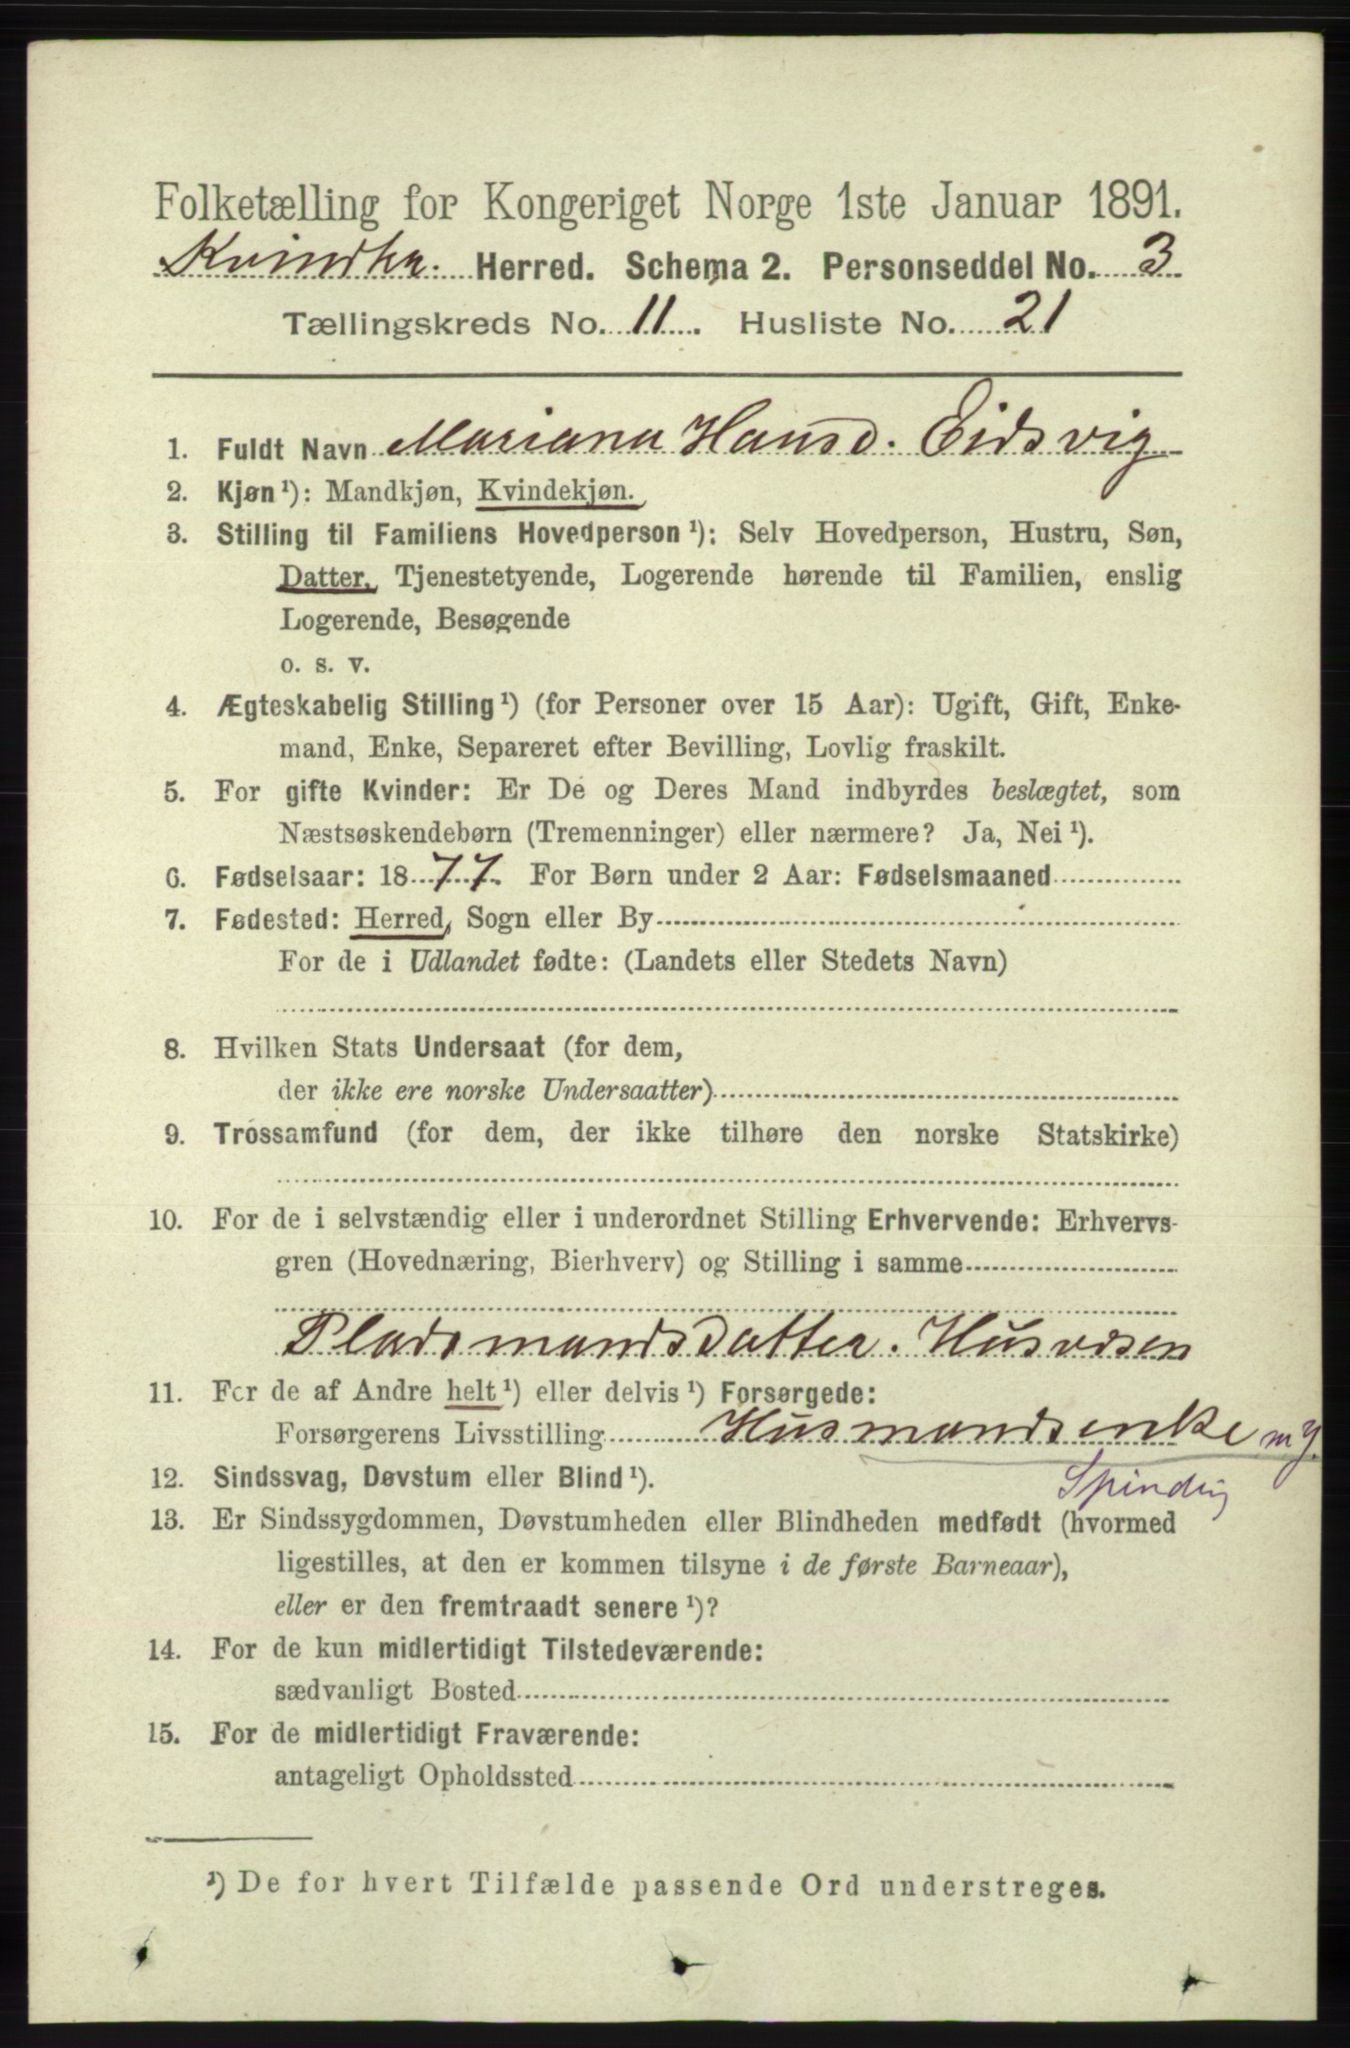 Folketælling for Kongeriget Norge 1ste Januar 1891.
Kvindhr. Herred. Schema 2. Personseddel No. 3
Tællingskreds No. 11. Husliste No. 21
1. Fuldt Navn Mariana Hansd. Eidsvig
2. Kjøn¹): Mandkjøn, Kvindekjøn.
3. Stilling til Familiens Hovedperson¹): Selv Hovedperson, Hustru, Søn,
Datter, Tjenestetyende, Logerende hørende til Familien, enslig
Logerende, Besøgende
o. s. v.
4. Ægteskabelig Stilling¹) (for Personer over 15 Aar): Ugift, Gift, Enke-
mand, Enke, Separeret efter Bevilling, Lovlig fraskilt.
5. For gifte Kvinder: Er De og Deres Mand indbyrdes beslægtet, som
Næstsøskendebørn (Tremenninger) eller nærmere? Ja, Nei¹).
6. Fødselsaar: 1877. For Børn under 2 Aar: Fødselsmaaned
7. Fødested: Herred, Sogn eller By
For de i Udlandet fødte: (Landets eller Stedets Navn)
8. Hvilken Stats Undersaat (for dem,
der ikke ere norske Undersaatter)
9. Trossamfund (for dem, der ikke tilhøre den norske Statskirke)
10. For de i selvstændig eller i underordnet Stilling Erhvervende: Erhvervs-
gren (Hovednæring, Bierhverv) og Stilling i samme
Pladsmandsdatter. Husvæsen
11. For de af Andre helt¹) eller delvis¹) Forsørgede:
Forsørgerens Livsstilling Husmandsenke m J.
12. Sindssvag, Døvstum eller Blind¹).
Spinding
13. Er Sindssygdommen, Døvstumheden eller Blindheden medfødt (hvormed
ligestilles, at den er kommen tilsyne i de første Barneaar),
eller er den fremtraadt senere¹)?
14. For de kun midlertidigt Tilstedeværende:
sædvanligt Bosted
15. For de midlertidigt Fraværende:
antageligt Opholdssted
¹) De for hvert Tilfælde passende Ord understreges.